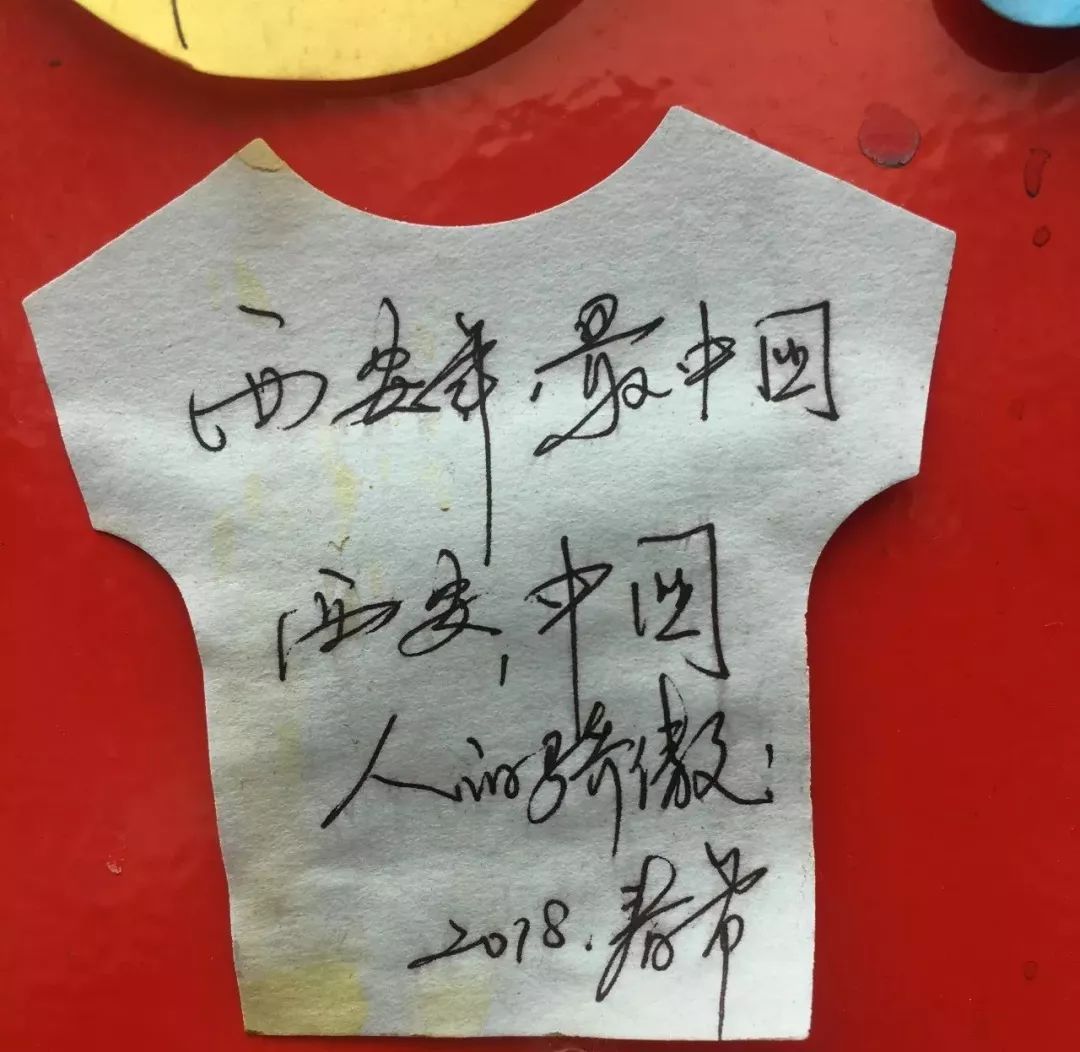 西安年·最中国
西安,中国
人的骄傲!
2018.春节